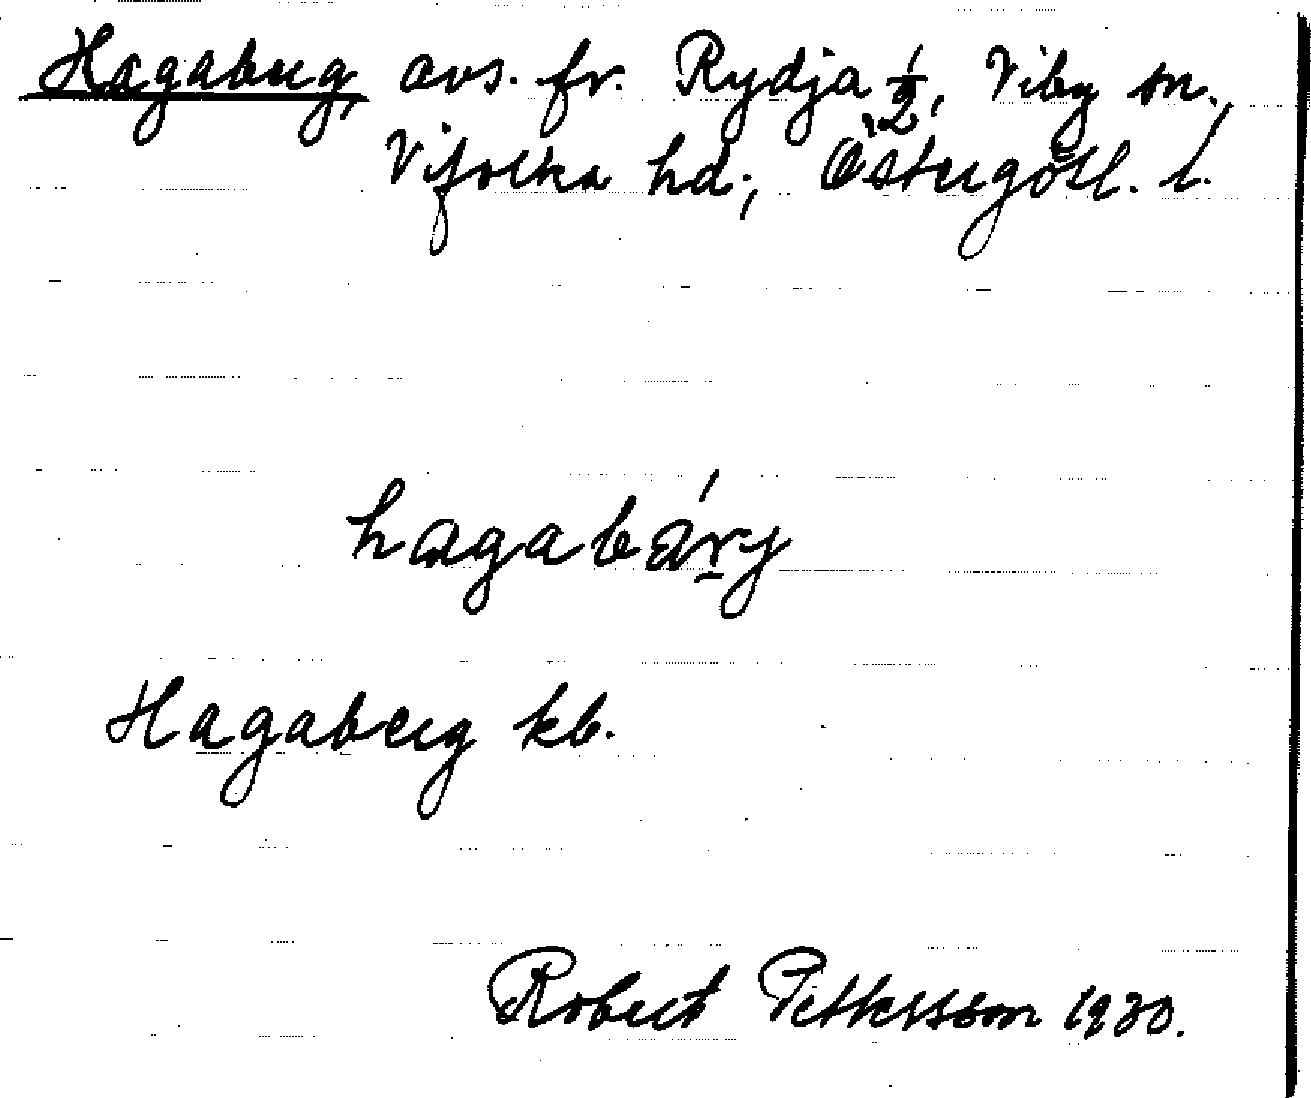 Hagaberg, avs. fr. Rydja 1/2, Viby sn.,
Vifolka hd.; Östergötl. l.
hagabárj
Hagaberg kb.
Robert Pettersson 1930.